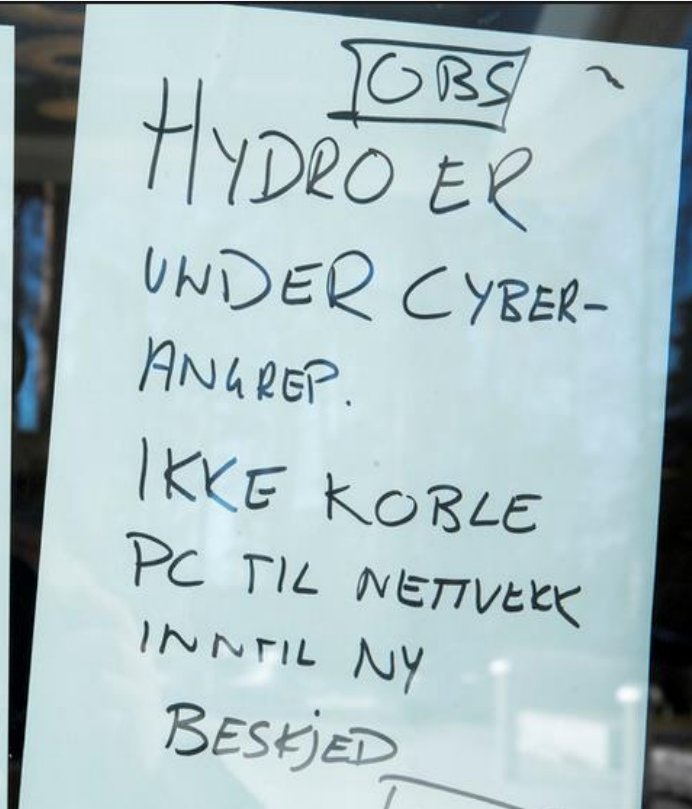 OBS
HYDRO ER
UNDER CYBER-
ANGREP.
IKKE KOBLE
PC TIL NETTVERK
INNTIL NY
BESKJED